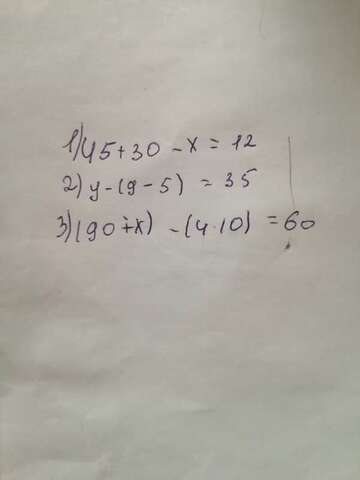 1) 45+30-x=12
2) y-(9-5)=35
3) (90+x)-(4·10)=60